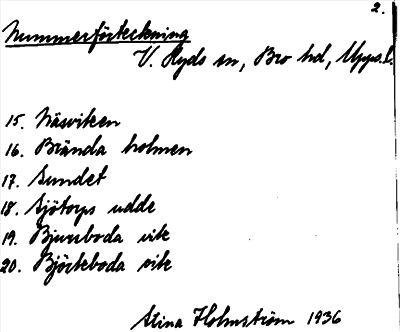 2.
Nummerförteckning
V. Ryds sn, Bro hd, Upps. l.
15. Näsviken
16. Brända holmen
17. Sundet
18. Sjötorps udde
19. Bjursboda vik
20. Björkeboda vik
Stina Holmström 1936